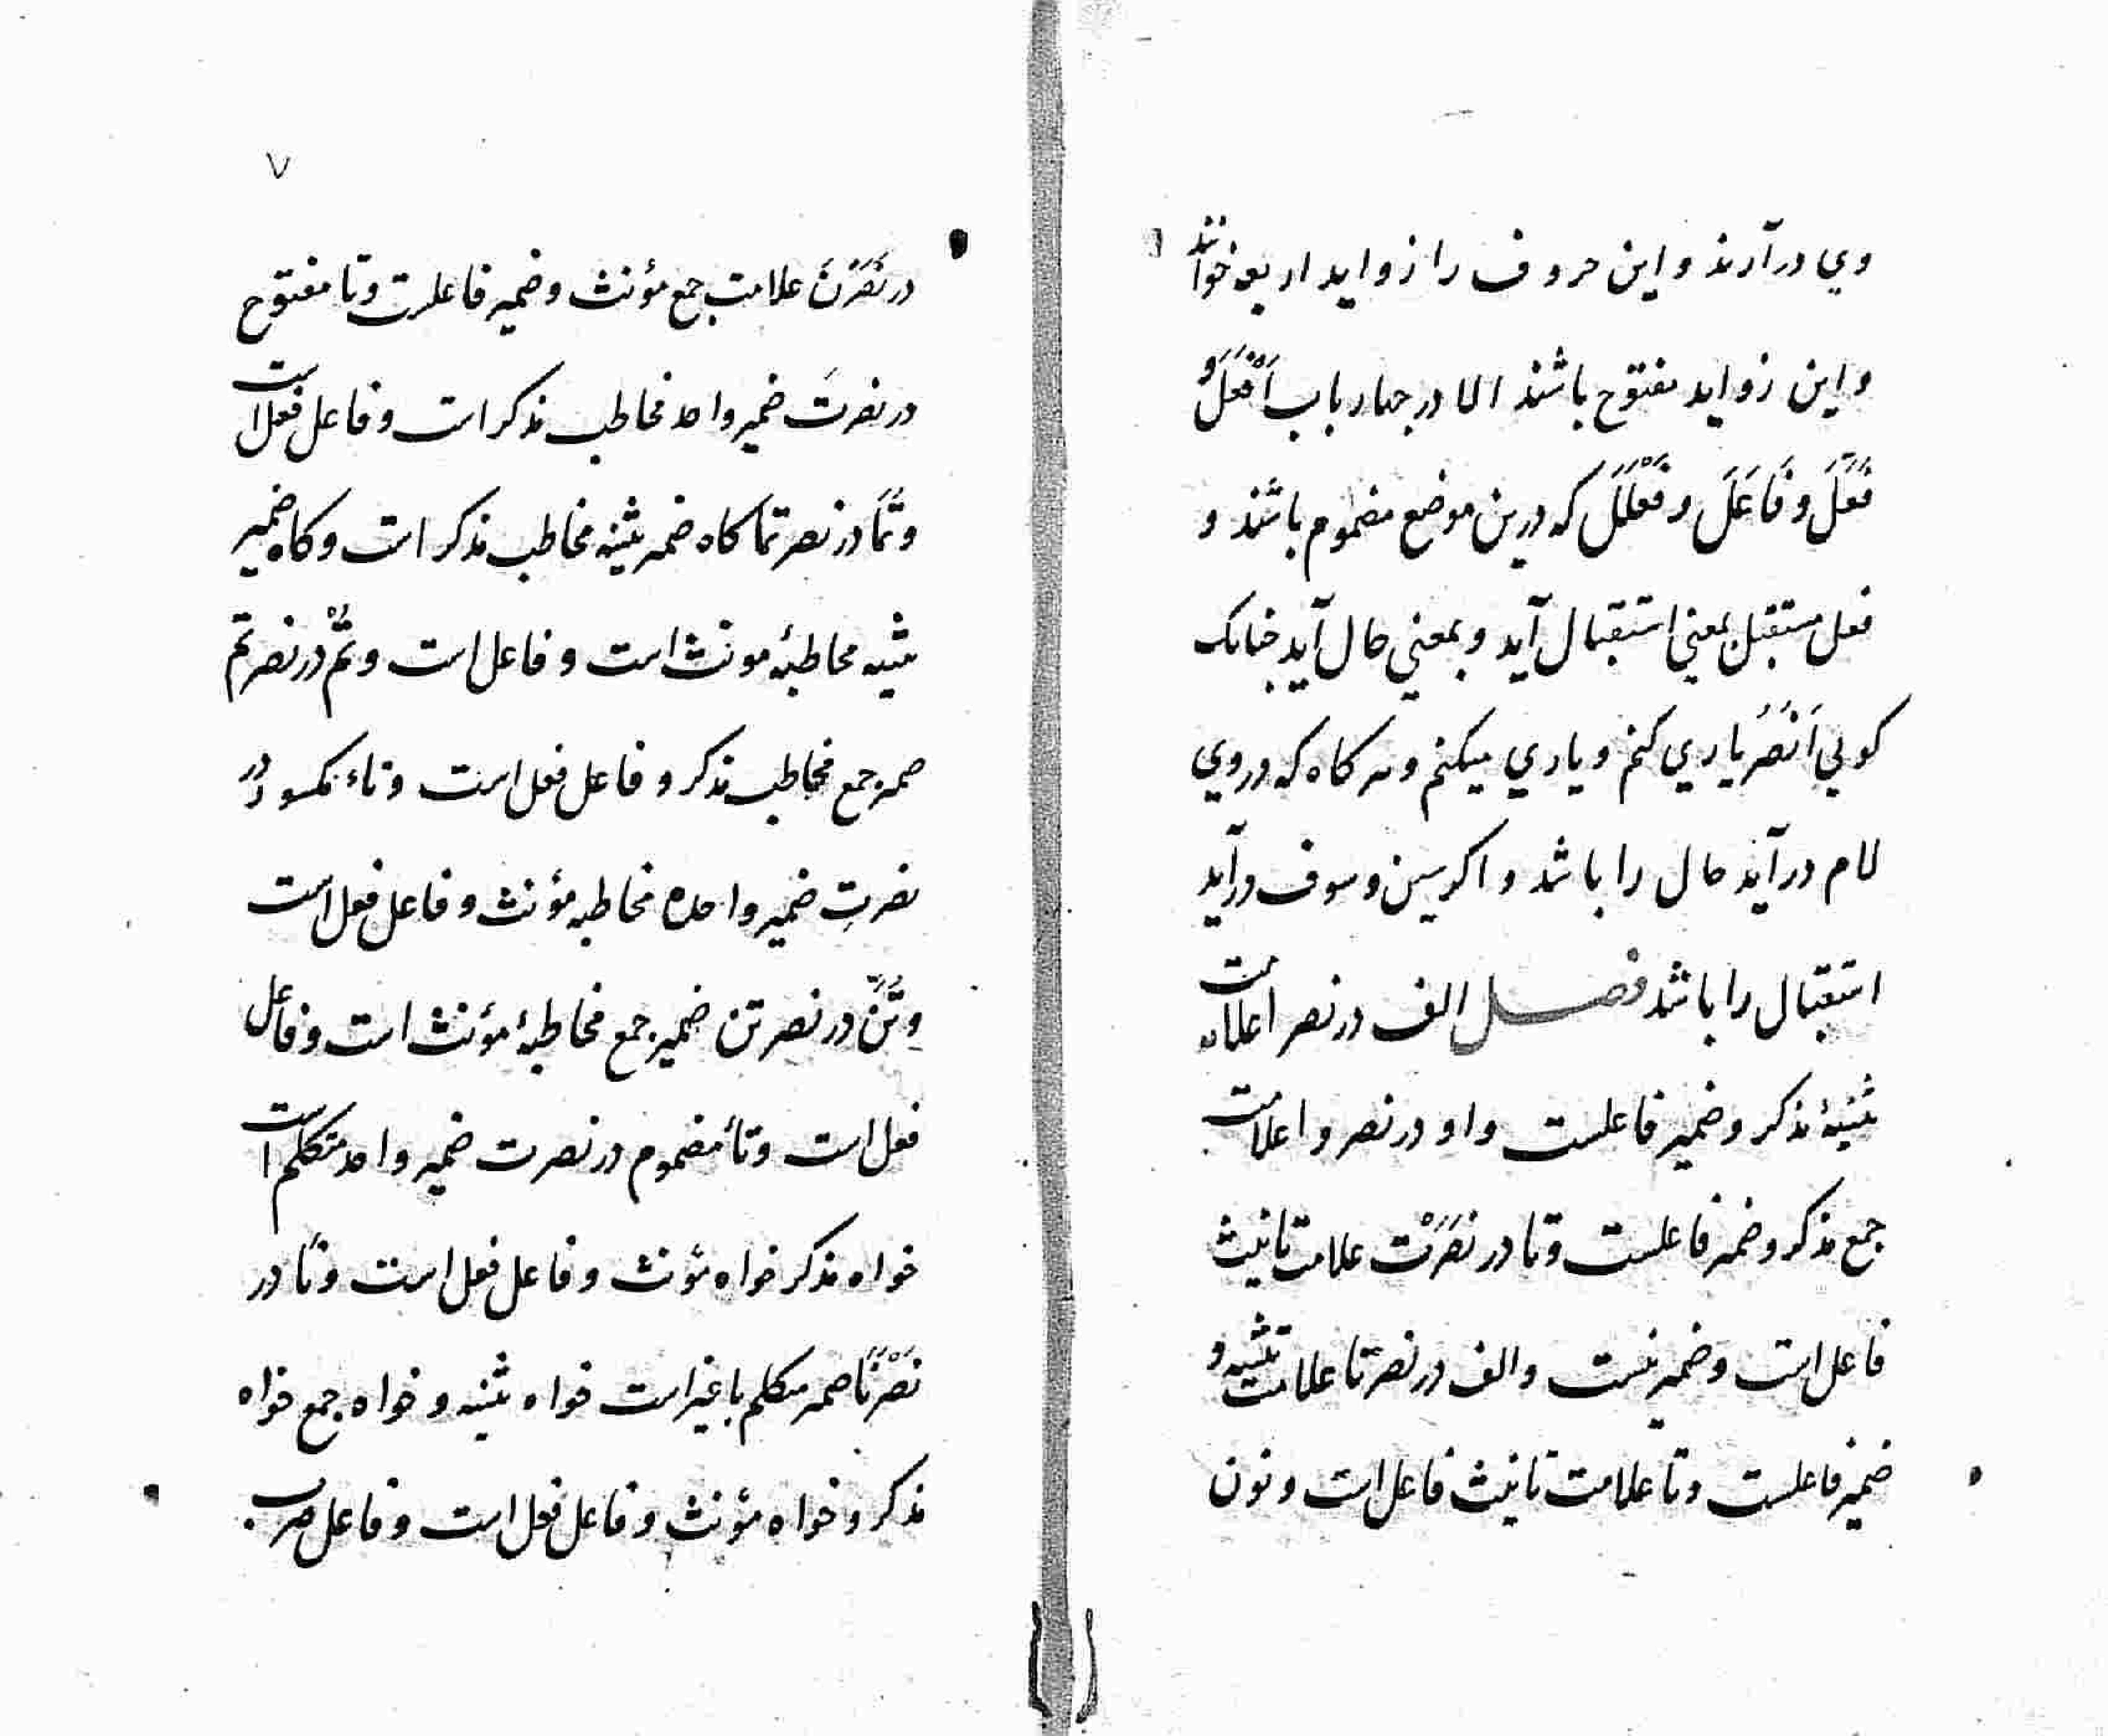 وي درآرند و این حروف را زواید اربعه خوانند
و این زواید مفتوح باشند الا در چهار باب اَفْعَلَ و
فَعَّلَ و فَاعَلَ و فَعْلَلَ که درین موضع مضموم باشند و
فعل مستقبل بمعني استقبال آید و بمعني حال آید چنانک
کویي اَنْصُرُ یاري کنم و یاري میکنم و هر کاه که در وي
لام درآید حال را باشد و اکر سین و سوف درآید
استقبال را باشد فصل الف در نصرا علامت
تثنیۀ مذکر و ضمیر فاعلست واو در نصروا علامت
جمع مذکر و ضمیر فاعلست و تا در نَصَرَتْ علامت تانیث
فاعل است و ضمیر نیست و الف در نصرتا علامت تثنیه و
ضمیر فاعلست و تا علامت تانیث فاعل است و نون
۷
در نَصَرْنَ علامت جمع مؤنث و ضمیر فاعلست و تا مفتوح
در نصرتَ ضمیر واحد مخاطب مذکر است و فاعل فعل است
و تُمَا در نصرتما کاه ضمیر تثنیه مخاطب مذکر است و کاه ضمیر
تثنیه مخاطبۀ مونث است و فاعل است و تُمْ در نصرتم
ضمیر جمع مخاطب مذکر و فاعل فعل است و تاء مکسور در
نصرتِ ضمیر واحده مخاطبه مؤنث و فاعل فعل است
و تُنَّ در نصرتن ضمیر جمع مخاطبۀ مؤنث است و فاعل
فعل است و تاء مضموم در نصرت ضمیر واحد متکلم است
خواه مذکر خواه مؤنث و فاعل فعل است و نَا در
نَصَرْنَا ضمیر متکلم با غیر است خواه تثنیه و خواه جمع خواه
مذکر و خواه مؤنث و فاعل فعل است و فاعل ضرب